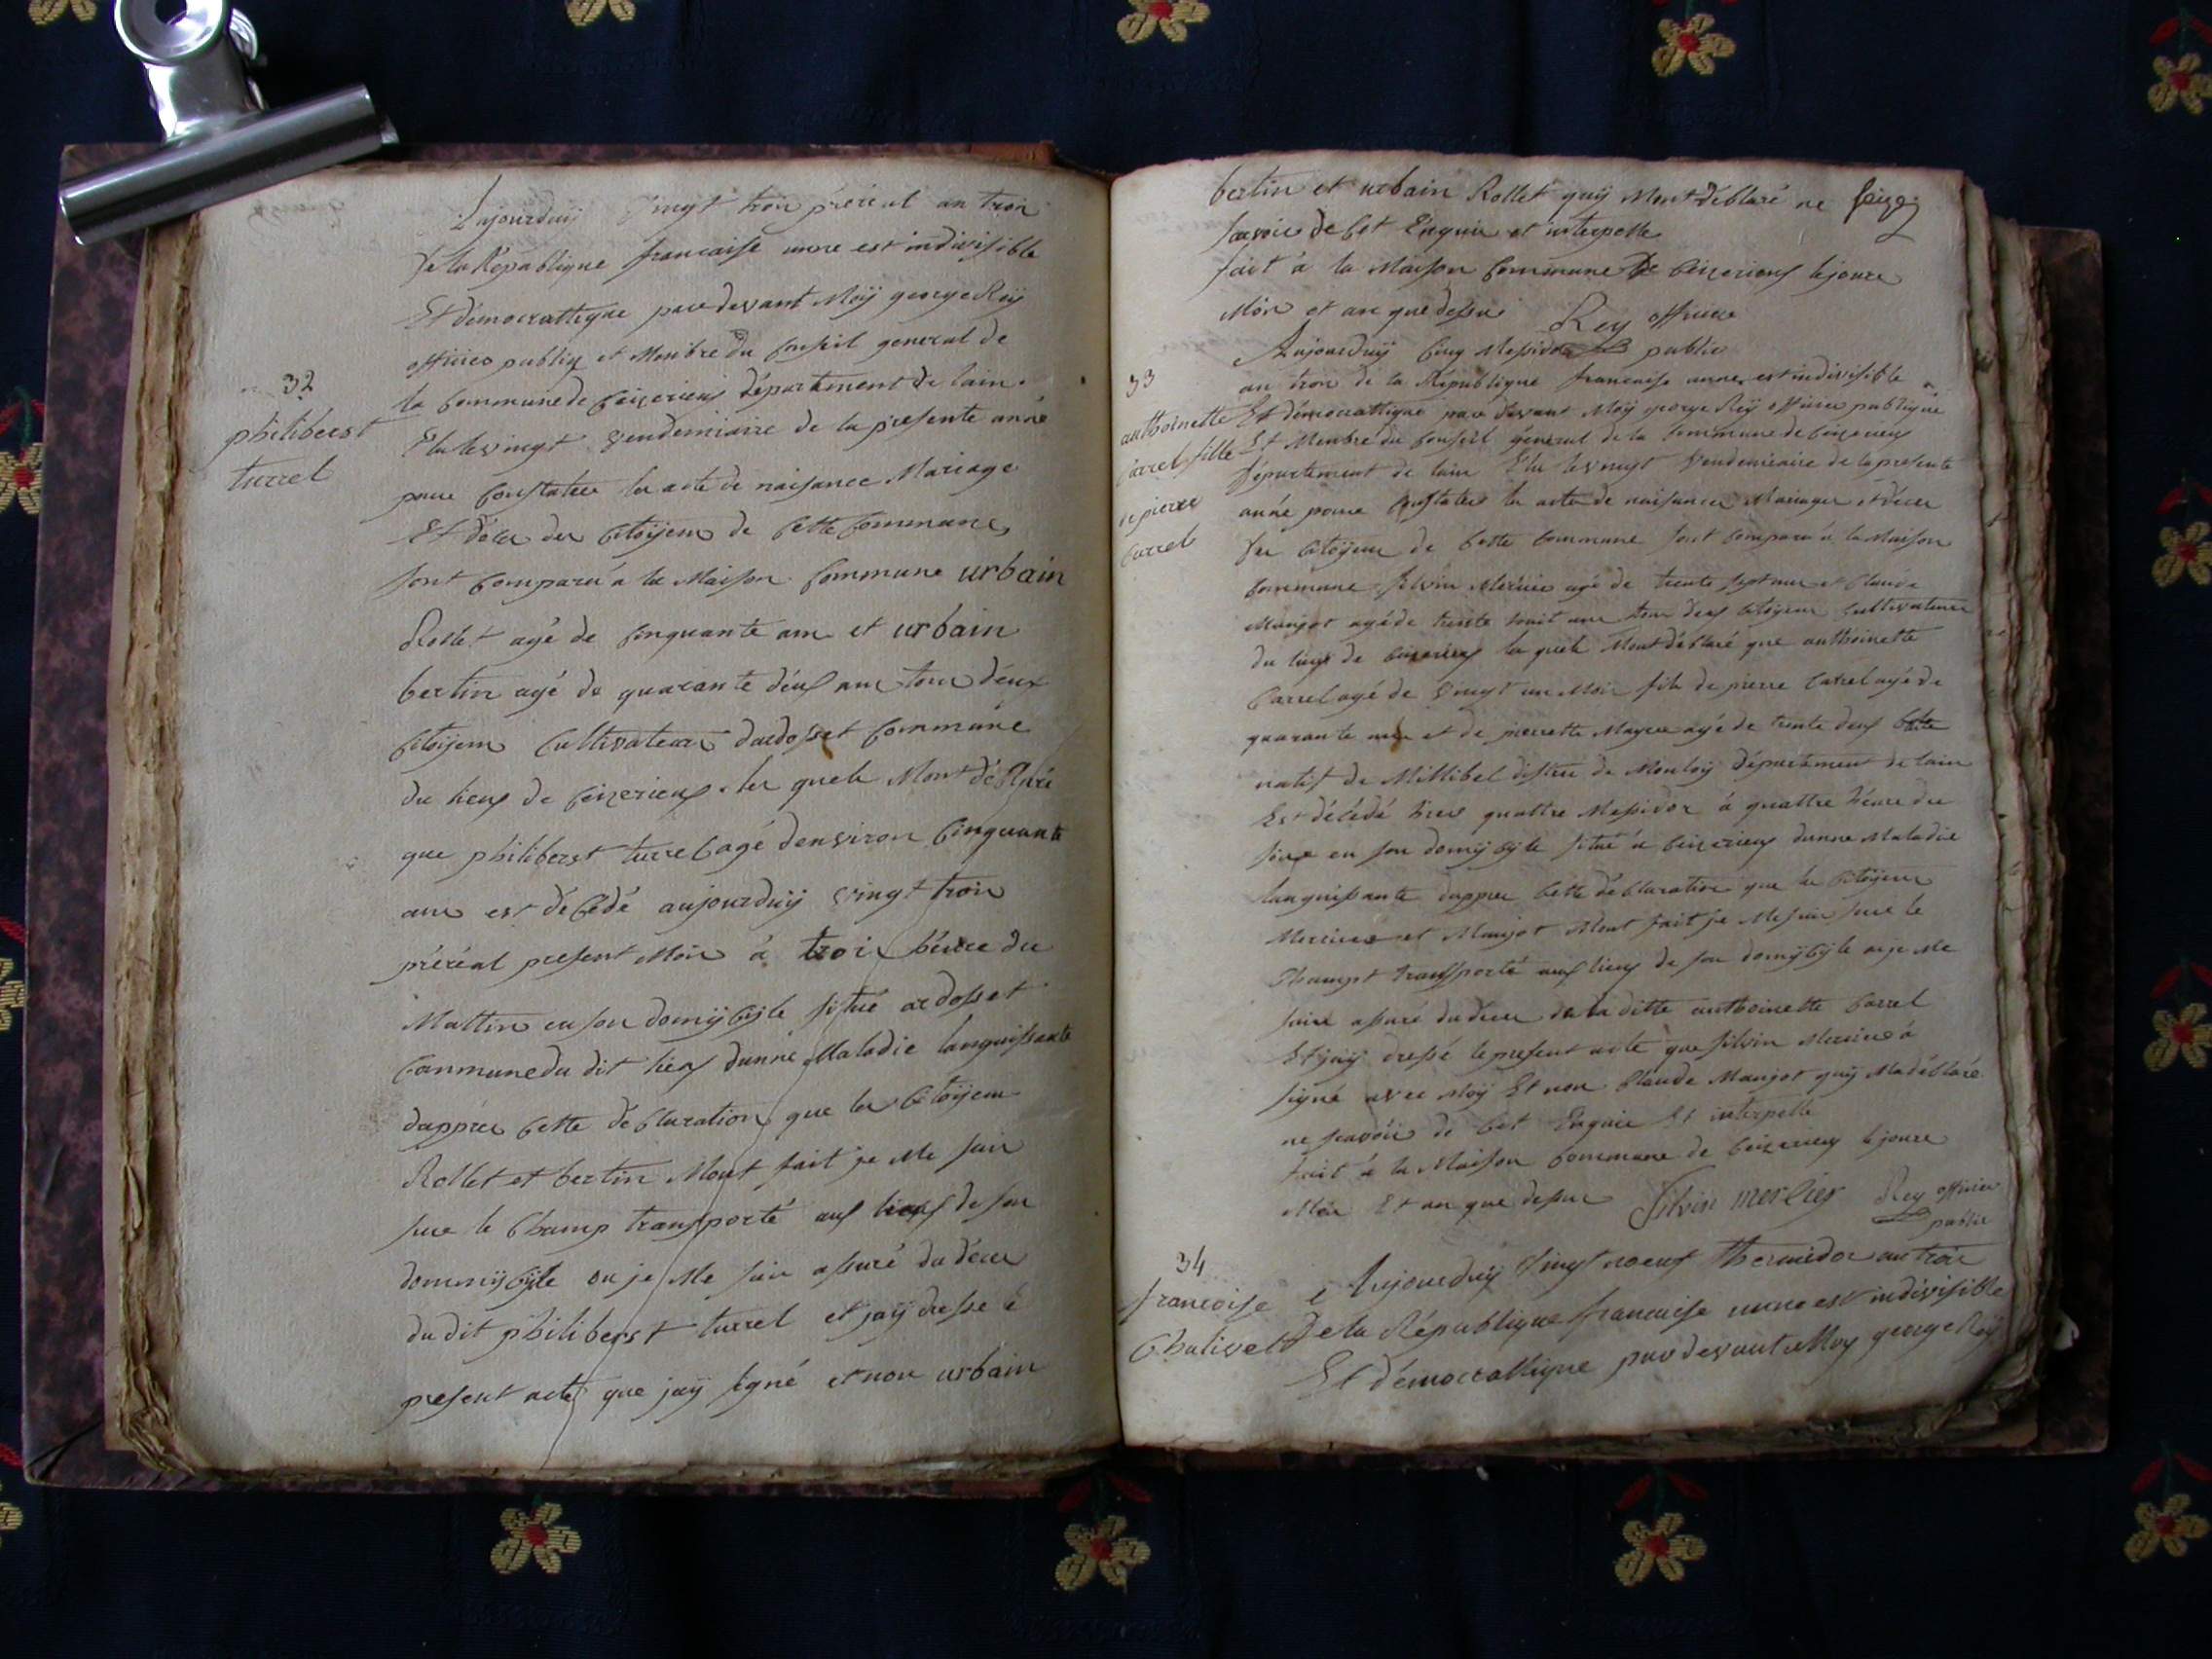 Aujourduij vingt troi préréal an troi
de la République francaise unne est indivisible
Et démocrattique pardevant Moij george Reij
officier publiq et Menbre du Conseil general de
la Commune de Ceizerieux Département de lain
Elu le vingt vendemiaire de la presente année
32
philiberst
turrel
pour Constater les acte de naisance Mariage
Et déces des Citoijens de Cette Commune
sont Comparu a la Maison Commune urbain
Rollet agé de Cinquante ans et urbain
bertin agé de quarante deux ans tous deux
Citoijens Cultivateurs dardosset Commune
du lieux de Ceizerieux les quels Mont déClaré
que philiberst turrel agé denviron Cinquante
ans est déCédé aujourduij vingt trois
préréal present Mois à trois heure du
Mattin en son domijCijle situé ardosset
Commune du dit lieux dunne Maladie languissante
dappres Cette déClaration que les Citoijens
Rollet et bertin Mont fait je Me suis
sur le Champ transporté aux lieux de son
dommijCijle ou je Me suis assuré du déces
du dit philiberst turrel et jaij dressé le
present acte que jaij signé et non urbain
bertin et urbain Rollet quij Mont déClaré ne
seize
savoir de Cet Enquis et interpelle
fait à la Maison Commune De Ceizerieux le jour
Mois et an que dessus Rey officier
public
33
anthoinette
Carrel fille
de pierre
Carrel
Aujourduij Cinq Messidor
an troi de la République francaise unne est indivisible
Et démocrattique par devant Moij george Reij officier publique
Et Menbre du Conseil general de la Commune de Ceizerieux
Département de lain Elu le vingt vendemiaire de la presente
année pour Constater les acte de naisances Mariages et déces
des Citoijens de Cette Commune sont Comparu à la Maison
Commune Silvin Mercier agé de trente sept ans et Claude
Manjot agé de trente huit ans tous deux Citoijens Cultivateurs
du lieux de Ceizerieux les quels Mont déClaré que anthoinette
Carrel agé de vingt un Mois fille de pierre Carrel agé de
quarante ans et de pierrette agé de trente deux
natif de Millibel district de Monloij Département de lain
Est décédé hier quattre Messidor à quattre heure du
soire en son domijCijle situé à Ceizerieux dunne Maladie
languissante dappres Cette déClaration que les Citoijens
Mercier et Manjot Mont fait je Me suis sur le
Champt transporté aux lieux de son domijCijle ou je Me
suis assuré du déces de la ditte anthoinette Carrel
Et jaij dressé le present acte que Silvin Mercier à
signé avec Moij Et non Claude Manjot quij Ma déClaré
ne scavoir de Cet Enquis Et interpellé
fait à la Maison Commune de Ceizerieux le jour
Mois Et an que dessus Silvin merCier Rey officier
public
34
francoise
Chalivet
Aujourduij vingt noeuf thermidor an troi
De la République francaise unne est indivisible
Et démocrattique par devant Moij george Reij